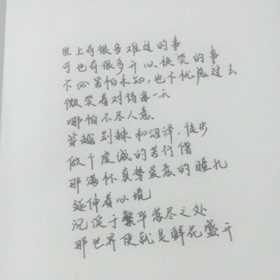 世上有很多难过的事
可也有很多开以快笑的事
不必害怕未知，也不忧虑过去
微笑着对待每一天
哪怕不尽人意
穿越荆棘和沼泽，徒步
做个虔诚的苦行僧
那满怀真挚爱意的瞳孔
延伸着心境
沉淀于繁华落尽之处
那世界便就是鲜花盛开